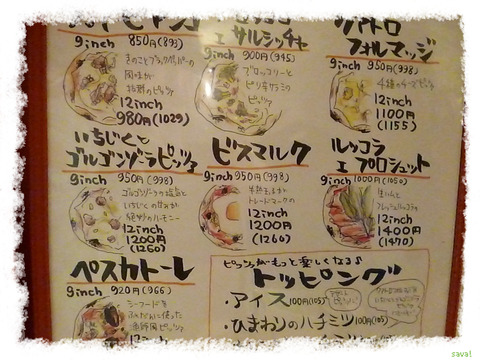 サルシッチャ
クアトロ
フォルマッジ
9inch 850円(893)
きのことブラックペッパーの
風味が
12inch
980円(1029)
9inch 900円(945)
ブロッコリーと
ピリ辛
9inch 950円(998)
4種のチーズ
12inch
1100円
(1155)
いちじくと
ゴルゴンゾーラピッツァ
9inch 950円(998)
ゴルゴンゾーラの塩気と
いちじくの甘みが
絶妙のハーモニー
12inch
1200円
(1260)
ビスマルク
9inch 950円(998)
半熟たまごが
トレードマークの
12inch
1200円
(1260)
ルッコラ
エ プロシュット
9inch 1000円(1050)
生ハムと
フレッシュルッコラの
12inch
1400円
(1470)
ペスカトーレ
9inch 920円(966)
シーフードを
ふんだんに使った
漁師風ピッツァ
12inch
ピッツァがもっと楽しくなる♪
トッピング
・アイス 100円(105)
・ひまわりのハチミツ 100円(105)
sava!